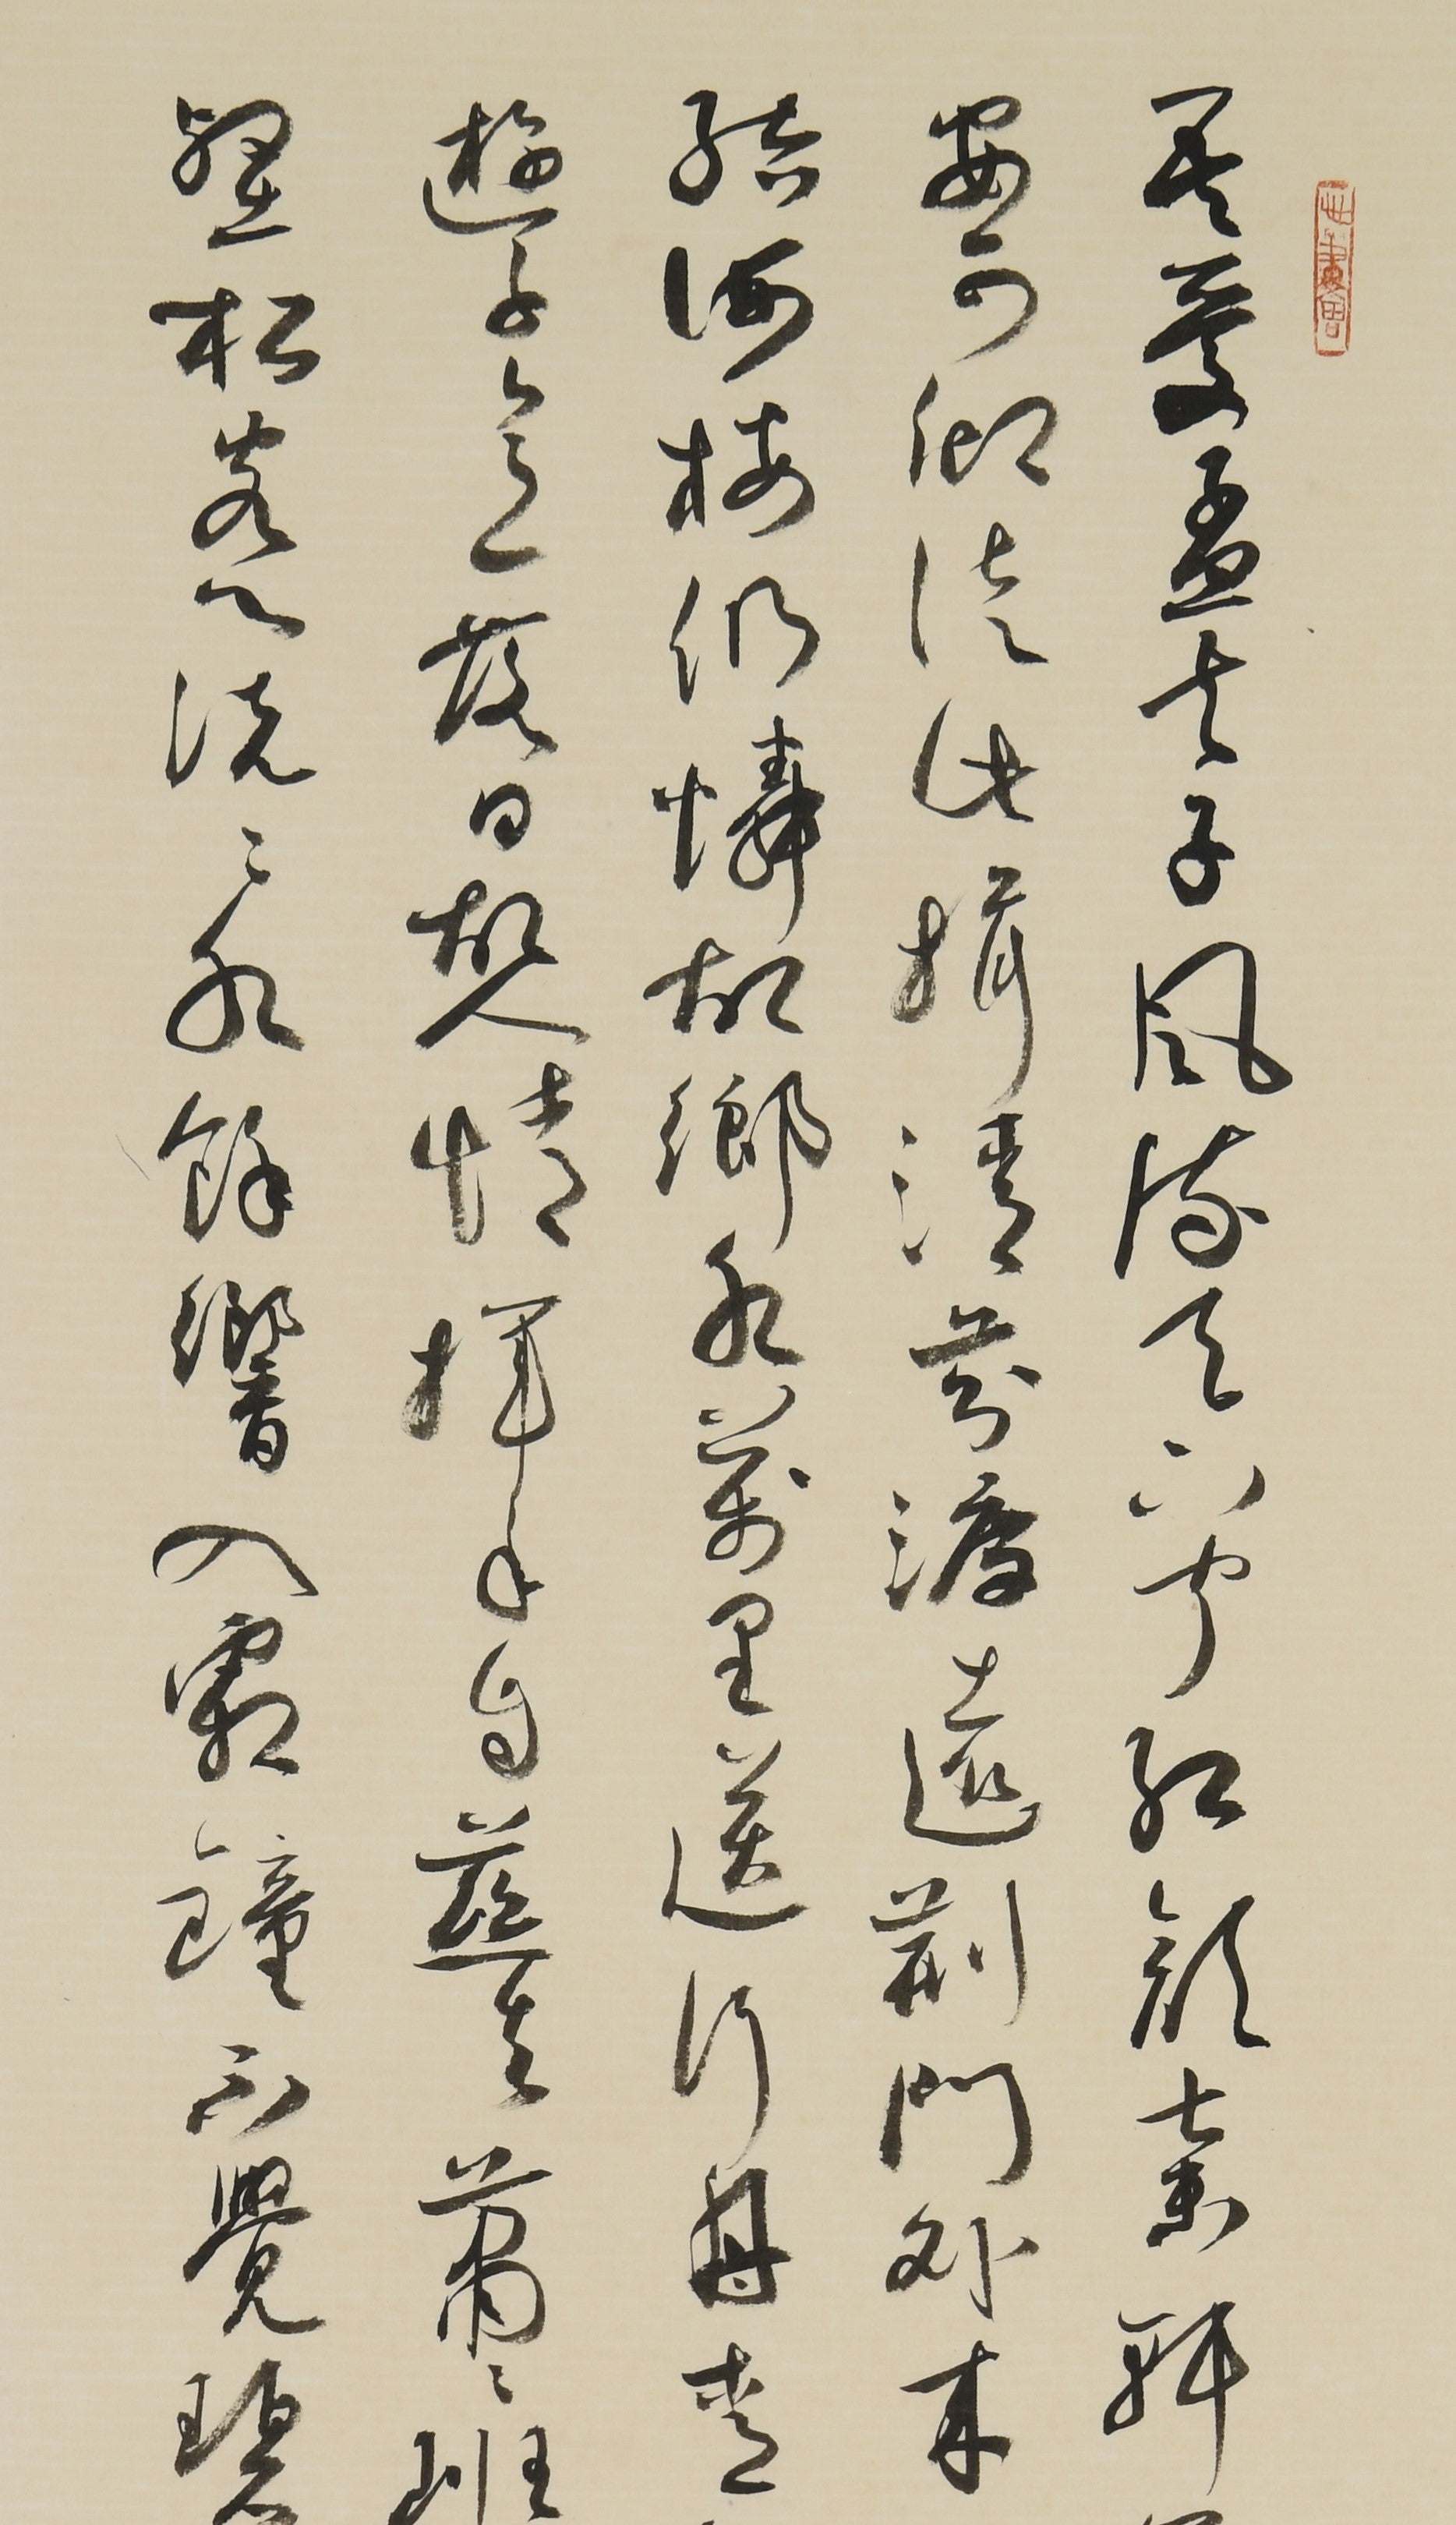 吾愛孟夫子風流天下聞紅顏棄軒
安可仰徒此揖清芬渡遠荊門外來
結海樓仍憐故鄉水萬里送行舟青
遊子意落日故人情揮手自茲去蕭々班
壑松客心洗々水餘響入霜鐘不覺碧